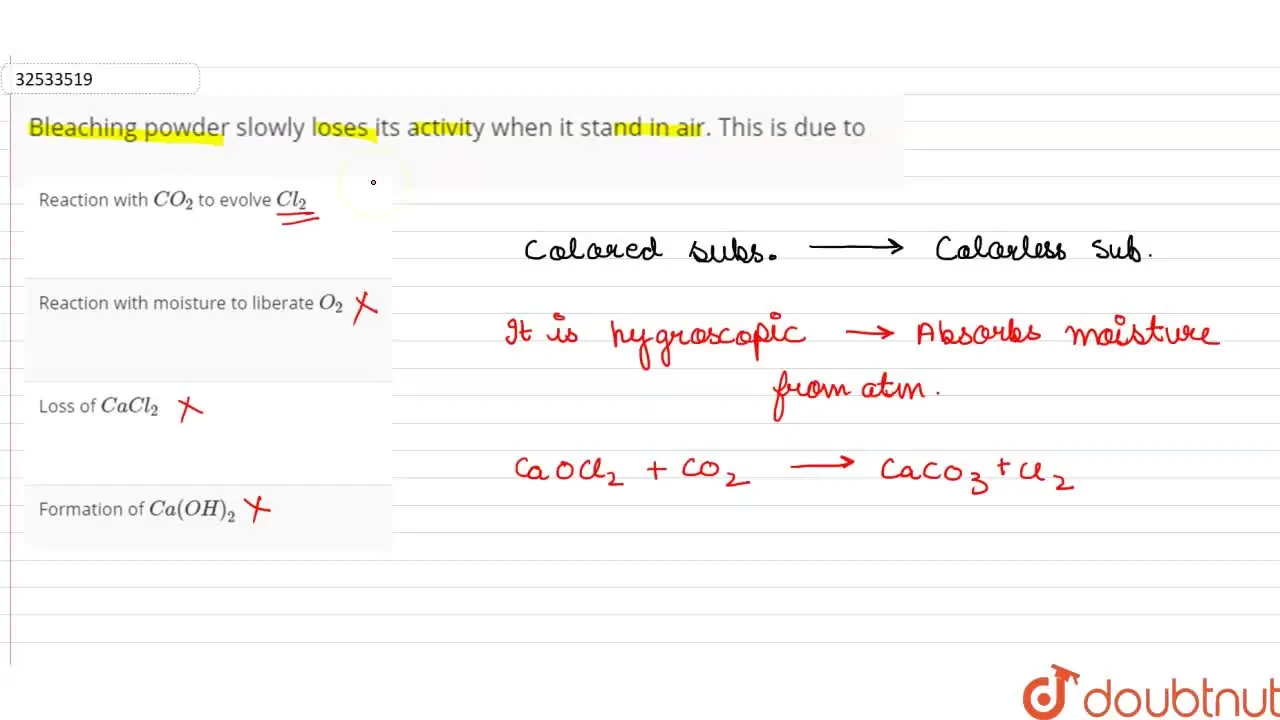 32533519
Bleaching powder slowly loses its activity when it stand in air. This is due to
Reaction with CO₂ to evolve Cl₂
Colored subs. → Colorless sub.
Reaction with moisture to liberate O₂ ✗
It is hygroscopic → Absorbs moisture
from atm.
Loss of CaCl₂ ✗
CaOCl₂ + CO₂ → CaCO₃ + Cl₂
Formation of Ca(OH)₂ ✗
doubtnut